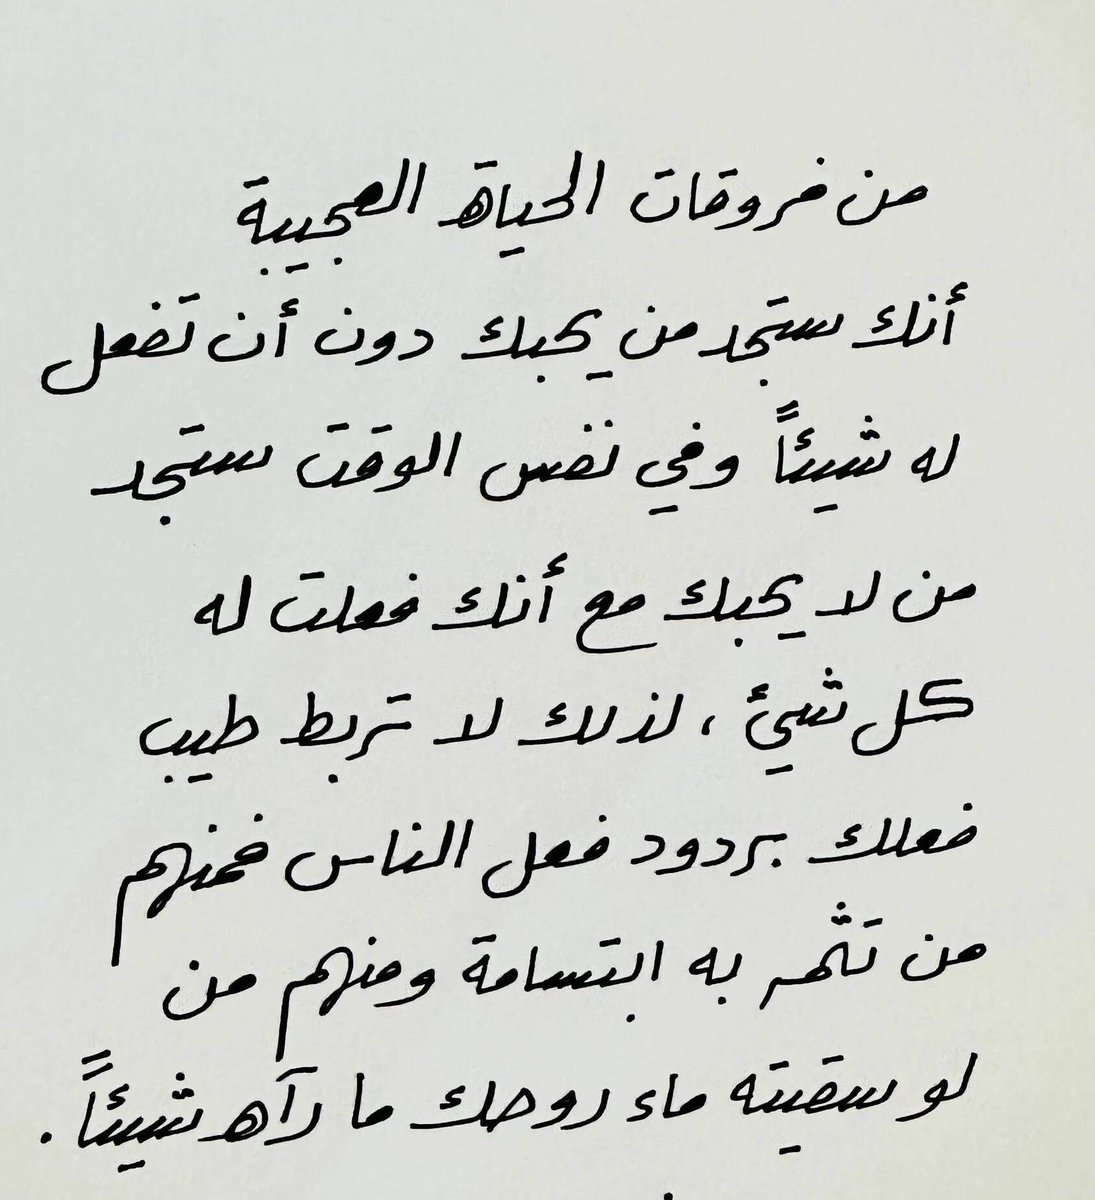 من فروقات الحياة العجيبة
أنك ستجد من يحبك دون أن تفعل
له شيئاً وفي نفس الوقت ستجد
من لا يحبك مع أنك فعلت له
كل شيئ ، لذلك لا تربط طيب
فعلك بردود فعل الناس فمنهم
من تثمر به ابتسامة ومنهم من
لو سقيته ماء روحك ما رآه شيئاً .